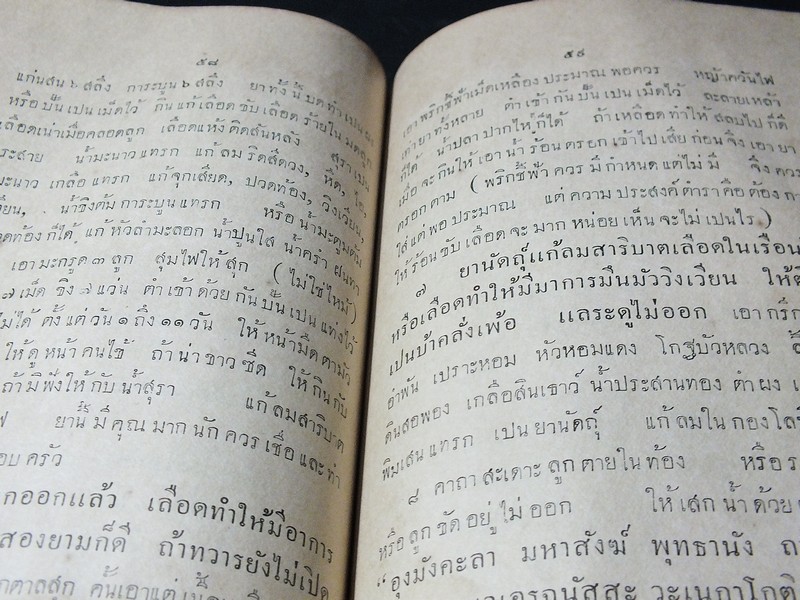 ๕๘
แก่นสน ๖ สลึง การะบูน ๖ สลึง ยาทั้งนี้บดทำเปนผง
หรือปั้นเปนเม็ดไว้ กินแก้เลือด ขับเลือดร้ายในมดลูก
เลือดเน่าเมื่อคลอดลูก เลือดแห้งติดสันหลัง สุราเปน
น้ำมะนาวแทรก แก้ลมริดสีดวง, หืด, ไอ,
มะนาว เกลือแทรก แก้จุกเสียด, ปวดท้อง, วิงเวียน,
น้ำขิงต้มการะบูนแทรก หรือน้ำมะตูมต้ม
ท้องก็ได้ แก้หัวลำมะลอก น้ำปูนใส น้ำคร่ำ ฝนทา
เอามะกรูด ๓ ลูก สุมไฟให้สุก (ไม่ใช่ไหม้)
๗ เม็ด ขิง ๗ แว่น ตำเข้าด้วยกันปั้นเปนแท่งไว้
ไม่ได้ ตั้งแต่วัน ๑ ถึง ๑๑ วัน ให้หน้ามืดตามัว
ให้ดูหน้าคนไข้ ถ้าน่าขาวซีด ให้กินกับ
ถ้ามีพึงให้กับน้ำสุรา แก้ลมสาริบาต
ยานี้มีคุณมากนักควรเชื่อและทำ
ครัว
ออกแล้ว เลือดทำให้มีอาการ
สองยามก็ดี ถ้าทวารยังไม่เปิด
๕๙
เอาพริกชี้ฟ้าเม็ดเหลืองประมาณพอควร หญ้าควันไฟ
เท่ายาทั้งหลาย ตำเข้ากันปั้นเปนเม็ดไว้ ละลายเหล้า
ก็ได้ น้ำปลาปากไหก็ได้ ถ้าเหลือดทำให้สลบไปก็ดี
เมื่อจะกินให้เอาน้ำร้อนครอกเข้าไปเสียก่อนจึงเอายา
ครอกตาม (พริกชี้ฟ้า ควรมีกำหนดแต่ไม่มี จึงควร
ใส่แต่พอประมาณ แต่ความประสงค์ตำราคือต้องกา
ให้ร้อนขับเลือด จะมากหน่อยเห็นจะไม่เปนไร)
๗ ยานัตถุ์แก้ลมสาริบาตเลือดในเรือน
หรือเลือดทำให้มีมาการมึนมัววิงเวียน ให้
เปนบ้าคลั่งเพ้อ และระดูไม่ออก เอากรัก
อำพัน เปราะหอม หัวหอมแดง โกฐบัวหลวง
ดินสอพอง เกลือสินเธาว์ น้ำประสานทอง ตำผง
พิมเสนแทรก เปนยานัตถุ์ แก้ลมในกองโลหิ
๘ คาถาสะเดาะลูกตายในท้อง หรือ
หรือลูกขัดอยู่ไม่ออก ให้เสกน้ำด้วย
“อุงมังคะลา มหาสังฆ์ พุทธานัง